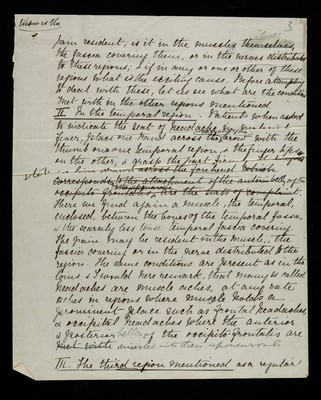 3
pain resident, is it in the muscles themselves,
the fascia covering them, or in the nerves distributed
to these regions, & if in any or one or other of these
regions what is the exciting cause. Before attempting
to deal with these, let us see what are the conditions
met with in the other regions mentioned
II. In the temporal region. Patients when asked
to indicate the seat of headache
across the brow with the
thumb on one temporal region, & the finger tips
on the other, & grasp the part
across the forehead which
corresponds to the attachment of the
occipito frontalis, are the seats of complaint.
Here we find again a muscle, the temporal,
enclosed, between the bones of the temporal fossa,
& the scarcely less tense temporal fascia covering.
The pain may be resident in the muscle, the
fascia covering or in the nerve distributed to the
region. The same conditions are present as in the
& I would here remark, that many so called
headaches are muscle aches, at any rate
aches in regions where muscle holds a
prominent place such as frontal headaches,
& occipital headaches where the anterior
& posterior of the occipito-frontalis are
met with inserted into their aponeurosis
III. The third region mentioned as a regular